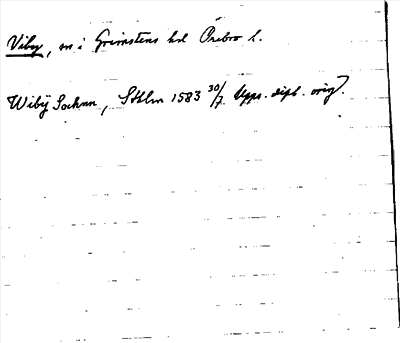 Viby, sn i Grimstens hd Örebro l.
Wibÿ Sochnn, Sthlm 1583 30/7 Upps. dipl. orig.